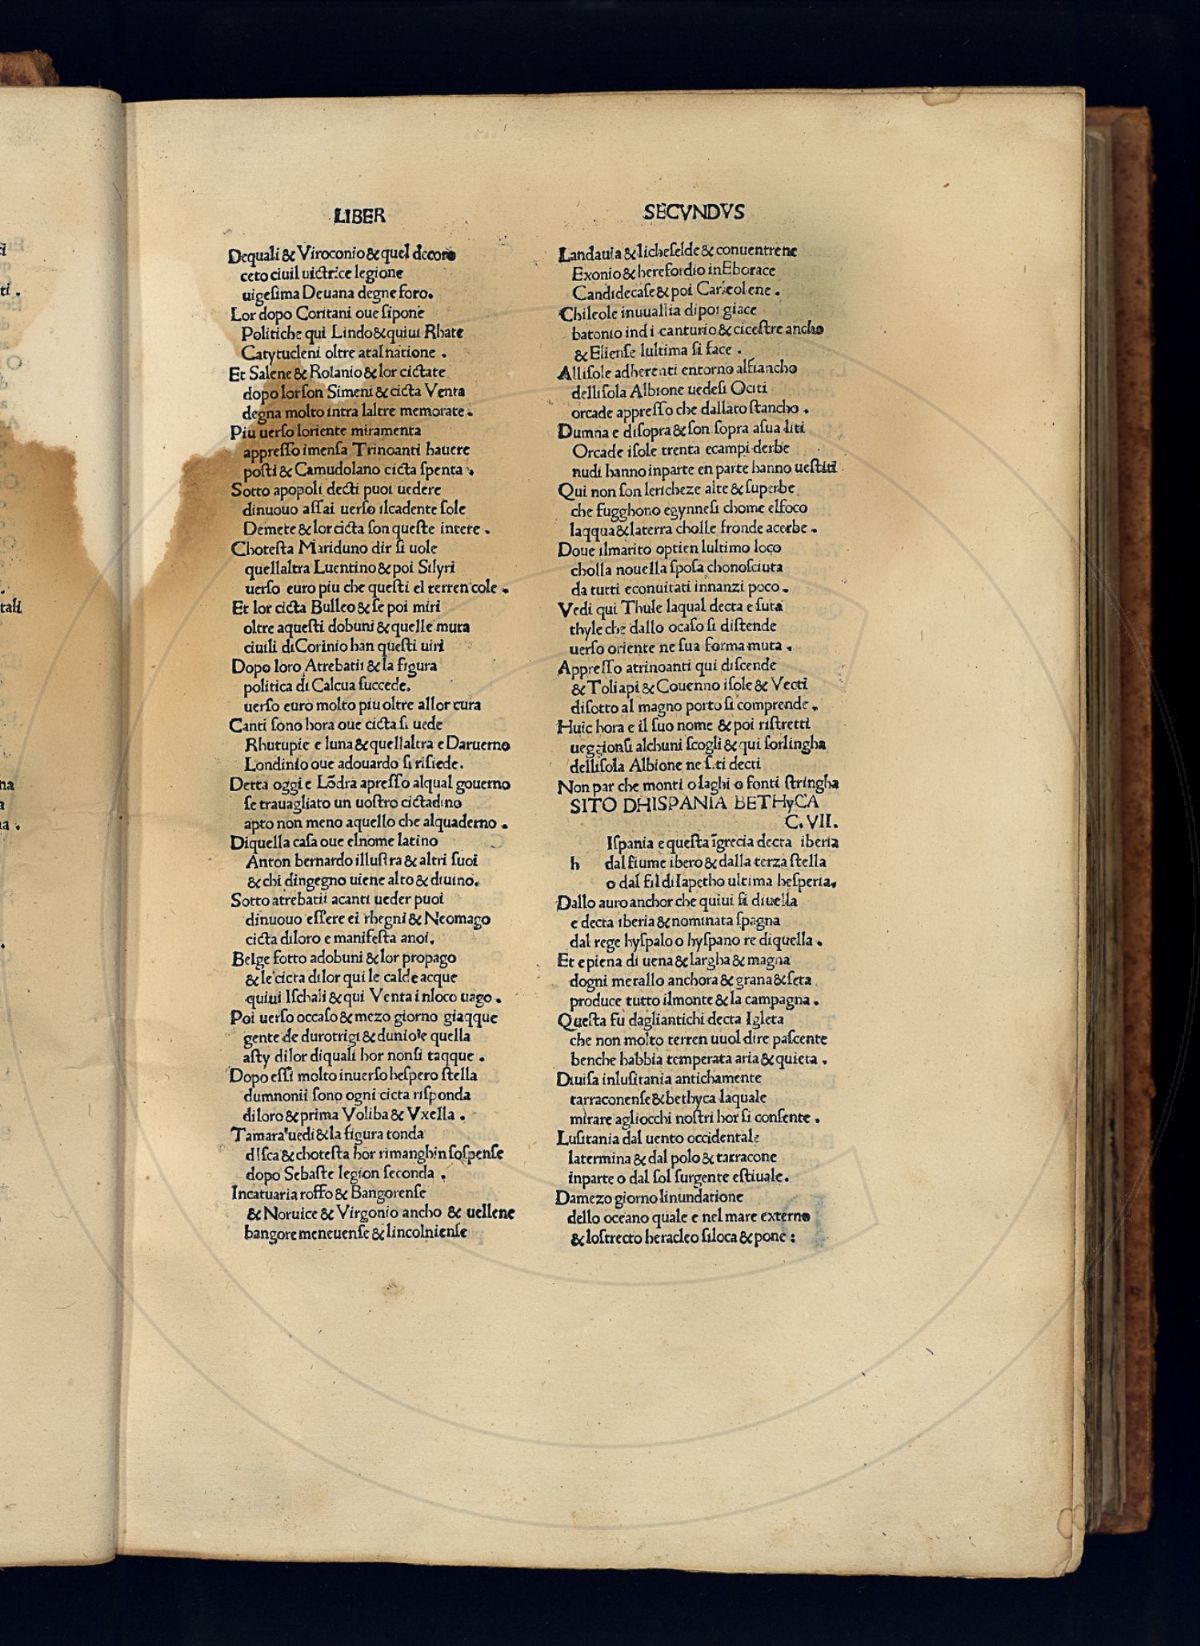 LIBER
Dequali & Viroconio & quel decoro
ceto ciuil uictrice legione
uigesima Deuana degne foro.
Lor dopo Coritani oue sipone
Politiche qui Lindo & quiui Rhate
Catytucleni oltre atal natione .
Et Salene & Rolanio & lor cictate
dopo lor son Simeni & cicta Venta
degna molto intra laltre memorate .
Piu uerso loriente miramenta
appresso imensa Trinoanti hauere
posti & Camudolano cicta spenta .
Sotto apopoli decti puoi uedere
dinuouo assai uerso ilcadente sole
Demete & lor cicta son queste intere .
Chotesta Mariduno dir si uole
quellaltra Luentino & poi Silyri
uerso euro piu che questi el terren cole .
Et lor cicta Bulleo & se poi miri
oltre aquesti dobuni & quelle mura
ciuili di Corinio han questi uiri
Dopo loro Atrebatii & la figura
politica di Calcua succede.
uerso euro molto piu oltre allor cura
Canti sono hora oue cicta si uede
Rhutupie e luna & quellaltra e Daruerno
Londinio oue adouardo si risiede.
Detta oggi e Lōdra apresso alqual gouerno
se trauagliato un uostro cictadino
apto non meno aquello che alquaderno .
Diquella casa oue elnome latino
Anton bernardo illustra & altri suoi
& chi dingegno uiene alto & diuino.
Sotto atrebatii acanti ueder puoi
dinuouo essere ei rhegni & Neomago
cicta diloro e manifesta anoi.
Belge sotto adobuni & lor propago
& le cicta dilor qui le calde acque
quiui Ischali & qui Venta in loco uago .
Poi uerso occaso & mezo giorno giaqque
gente de durotrigi & duniole quella
asty dilor diquali hor nonsi taqque .
Dopo essi molto inuerso hespero stella
dumnonii sono ogni cicta risponda
diloro & prima Voliba & Vxella .
Tamara uedi & la figura tonda
disca & chotesta hor rimanghin sospense
dopo Sebaste legion seconda .
Incatuaria rosso & Bangorense
& Noruice & Virgonio ancho & uellene
bangore meneuense & lincolniense
SECVNDVS
Landauia & lichefelde & conuentrene
Exonio & herefordio in Eborace
Candidecase & poi Carleolene .
Chileole inuuallia dipoi giace
batonio indi canturio & cicestre ancho
& Eliense lultima si face .
Allisole adherenti entorno alfiancho
dellisola Albione uedesi Ociti
orcade appresso che dallato stancho .
Dumna e disopra & son sopra asua liti
Orcade isole trenta ecampi derbe
nudi hanno inparte en parte hanno uestiti
Qui non son lericheze alte & superbe
che fugghono egynnesi chome elfoco
laqqua & laterra cholle fronde acerbe .
Doue ilmarito optien lultimo loco
cholla nouella sposa chonosciuta
da tutti econuitati innanzi poco .
Vedi qui Thule laqual decta e suta
thyle che dallo ocaso si distende
uerso oriente ne sua forma muta .
Appresso atrinoanti qui discende
& Toliapi & Couenno isole & Vecti
disotto al magno porto si comprende .
Huic hora e il suo nome & poi ristretti
ueggionsi alchuni scogli & qui sorlingha
dellisola Albione ne siti decti
Non par che monti o laghi o fonti stringha
SITO DHISPANIA BETHyCA
C. VII.
Ispania e questa īgrecia decta iberia
h dal fiume ibero & dalla terza stella
o dal fil di Iapetho ultima hesperia.
Dallo auro anchor che quiui si diuella
e decta iberia & nominata spagna
dal rege hyspalo o hyspano re diquella .
Et e piena di uena & largha & magna
dogni metallo anchora & grana & seta
produce tutto ilmonte & la campagna .
Questa fu dagliantichi decta Igleta
che non molto terren uuol dire pascente
benche habbia temperata aria & quieta .
Diuisa inlusitania antichamente
tarraconense & bethyca laquale
mirare agliocchi nostri hor si consente .
Lusitania dal uento occidentale
latermina & dal polo & tarracone
inparte o dal sol surgente estiuale.
Damezo giorno linundatione
dello oceano quale e nel mare externo
& lostrecto heracleo siloca & pone :